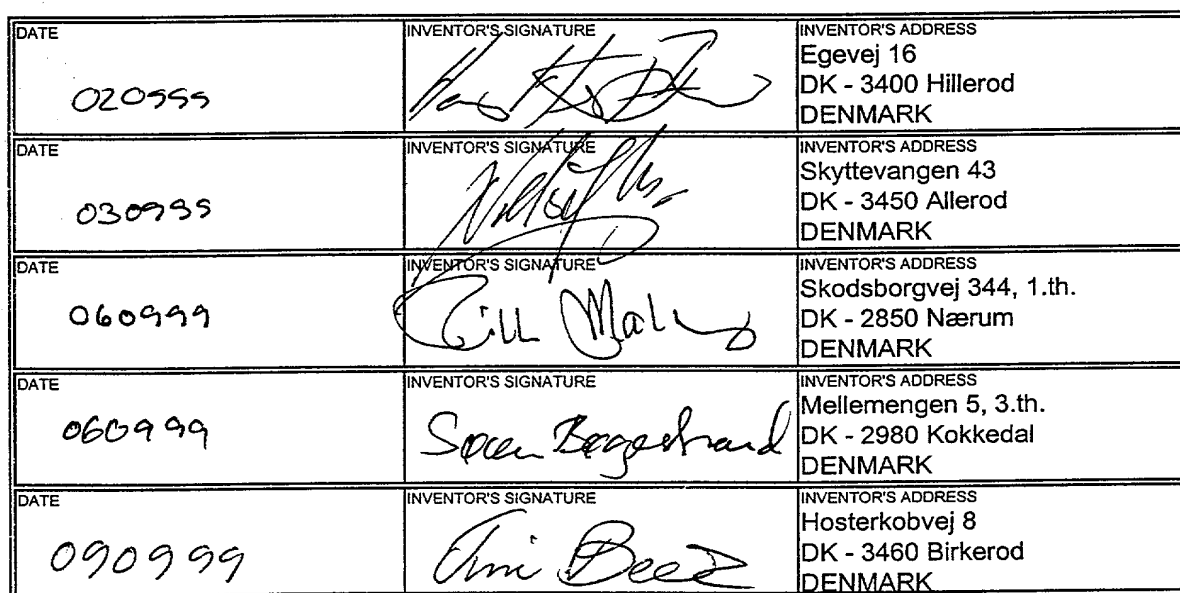 DATE
020999
INVENTOR'S SIGNATURE
INVENTOR'S ADDRESS
Egevej 16
DK - 3400 Hillerod
DENMARK
DATE
030999
INVENTOR'S SIGNATURE
INVENTOR'S ADDRESS
Skyttevangen 43
DK - 3450 Allerod
DENMARK
DATE
060999
INVENTOR'S SIGNATURE
INVENTOR'S ADDRESS
Skodsborgvej 344, 1.th.
DK - 2850 Nærum
DENMARK
DATE
060999
INVENTOR'S SIGNATURE
Søren
INVENTOR'S ADDRESS
Mellemengen 5, 3.th.
DK - 2980 Kokkedal
DENMARK
DATE
090999
INVENTOR'S SIGNATURE
INVENTOR'S ADDRESS
Hosterkobvej 8
DK - 3460 Birkerod
DENMARK